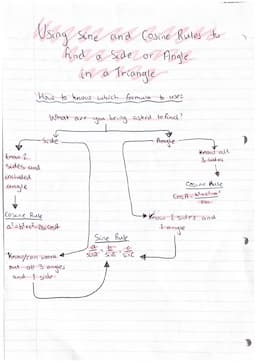 Using Sine and Cosine Rules to
find a Side or Angle
in a Triangle
How to know which formula to use:
What are you being asked to find?
Side
Angle
know 2
sides and
included
angle
Know all
3 sides
Cosine Rule
Cosine Rule
Know 2 sides and
1 angle
Sine Rule
Know/can work
out all 3 angles
and 1 side